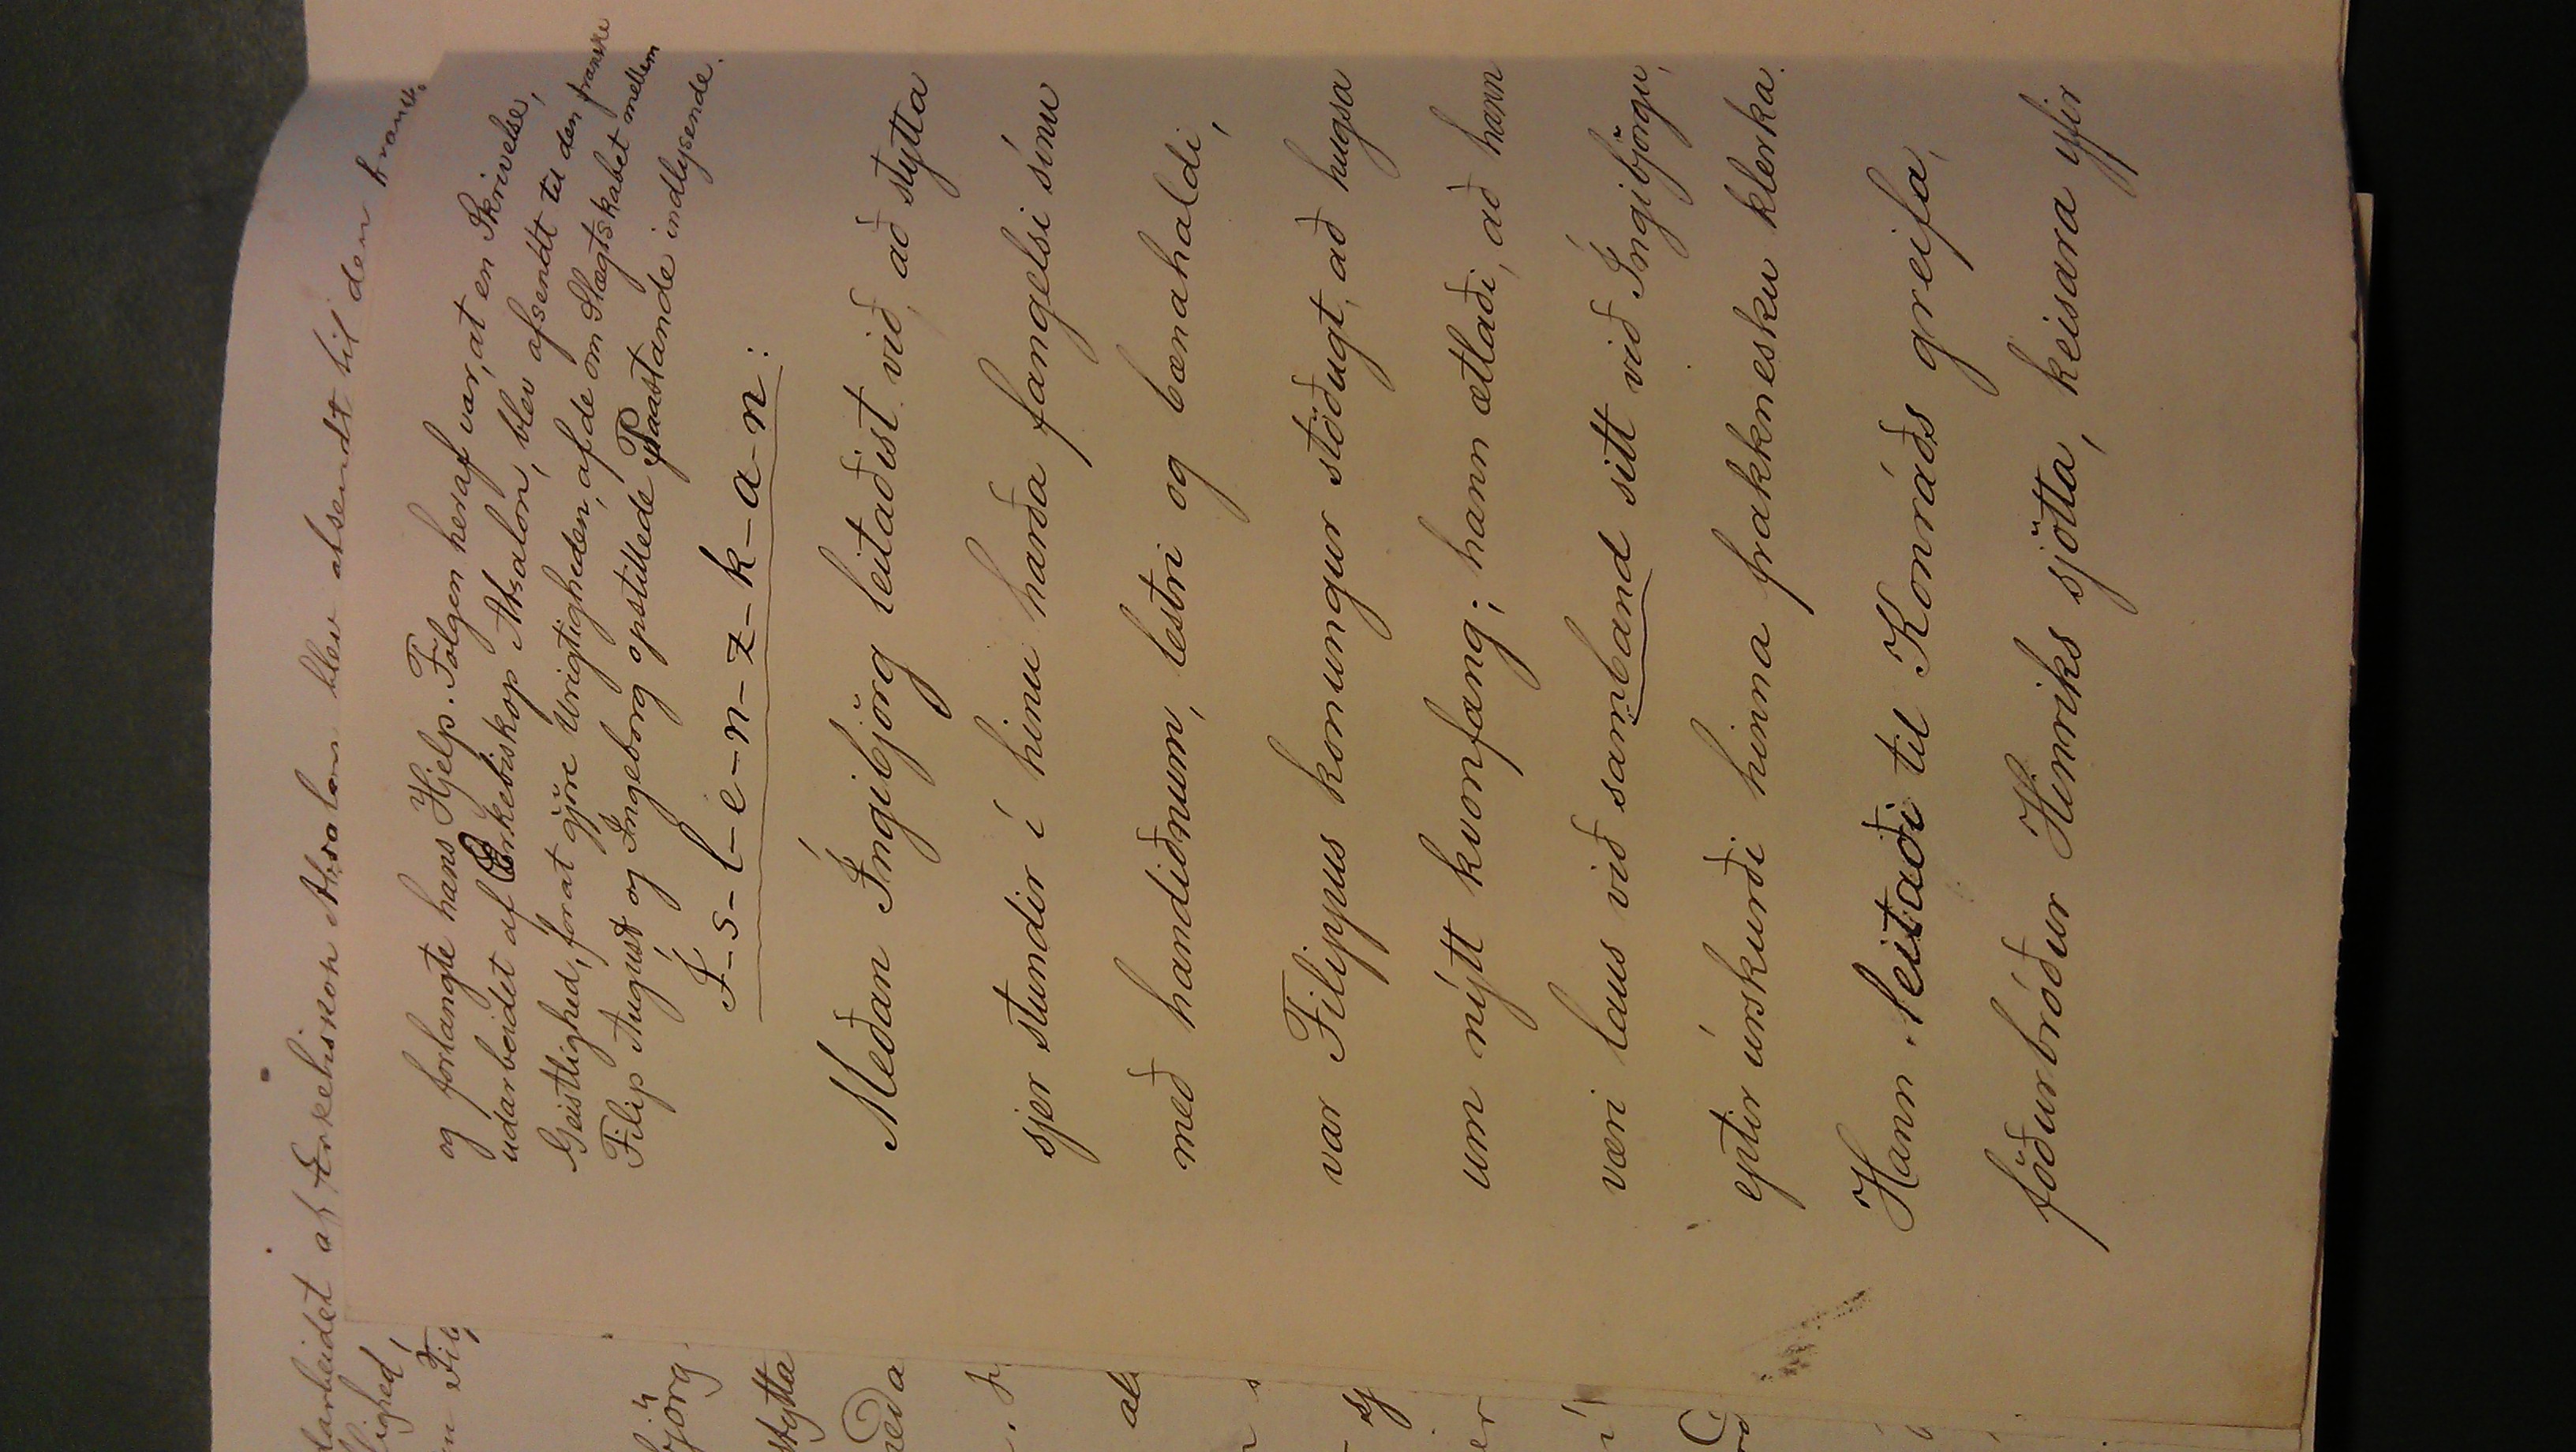 udarbeidet af Erkebiskop Absalon blev afsendt til den fransk
og forlangte hans Hjelp. Følgen heraf var, at en Skrivelse,
udarbeidet af Erkebiskop Absalon, blev afsendt til den franske
Geistlighed, for at gjöre Urigtigheden, af de om Slægtskabet mellem
Filip August og Ingeborg opstillede Paastande indlysende.
Í-s-l-e-n-z-k-a-n:
Meðan Íngibjörg leitaðist við, að stytta
sjer stundir í hinu harða fangelsi sínu
með handiðnum, lestri og bænahaldi,
var Filippus konungur stöðugt, að hugsa
um nýtt kvonfang; hann ætlaði, að hann
væri laus við samband sitt við Íngibjörgu,
eptir úrskurði hinna frakknesku klerka.
Hann leitaði til Konráðs greifa,
föðurbróður Hinriks sjötta, keisara yfir
lighed,
jörg
stytta